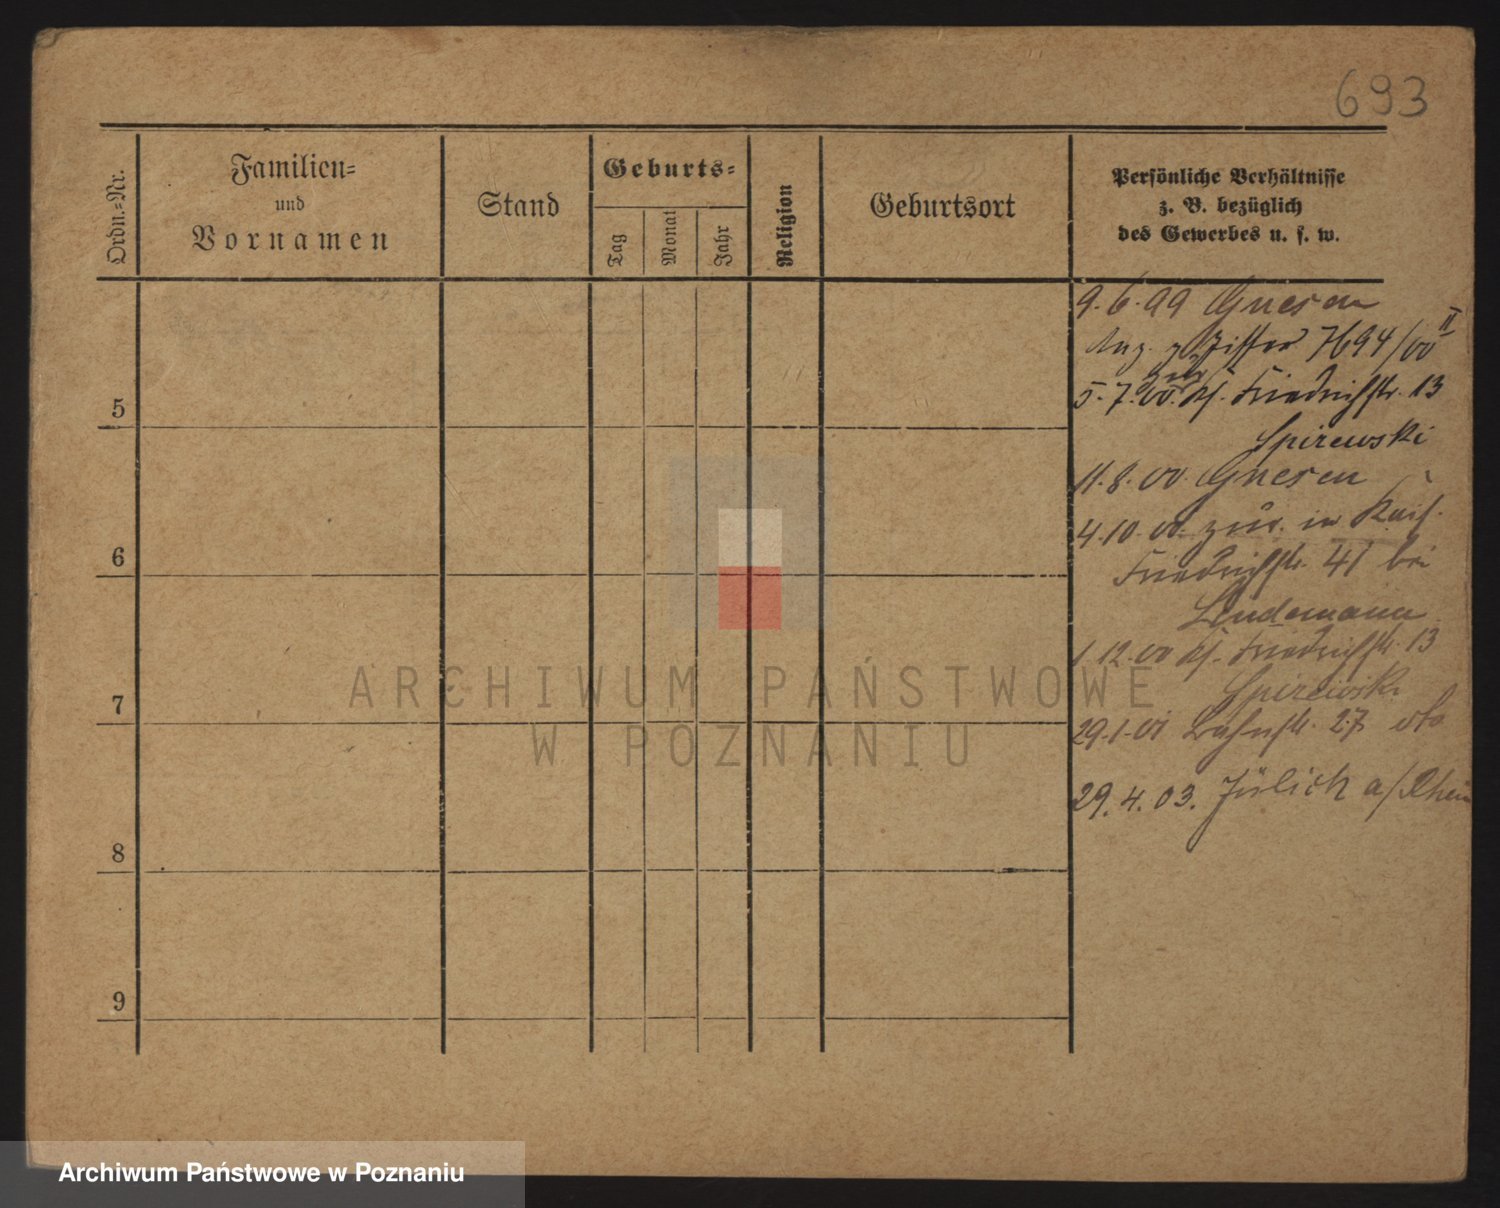 693
Ordn.-Nr.
Familien-
und
Vornamen
Stand
Geburts-
Tag
Monat
Jahr
Religion
Geburtsort
Persönliche Verhältnisse
z. B. bezüglich
des Gewerbes u. s. w.
9.6.99 Gnesen
Anz. z. Ziffer 7694/00 II
zur
5.7.00. Kf. Friedrichstr. 13
Spirewski
11.8.00 Gnesen
4.10.00. zur. in Kais.
Friedrichstr. 41 bei
Lindemann
1.12.00 Kf. Friedrichstr. 13
Spirewski
29.1.01 Bahnstr. 27
29.4.03. Jülich a/Rhein
5
6
7
8
9
ARCHIWUM PAŃSTWOWE
W POZNANIU
Archiwum Państwowe w Poznaniu